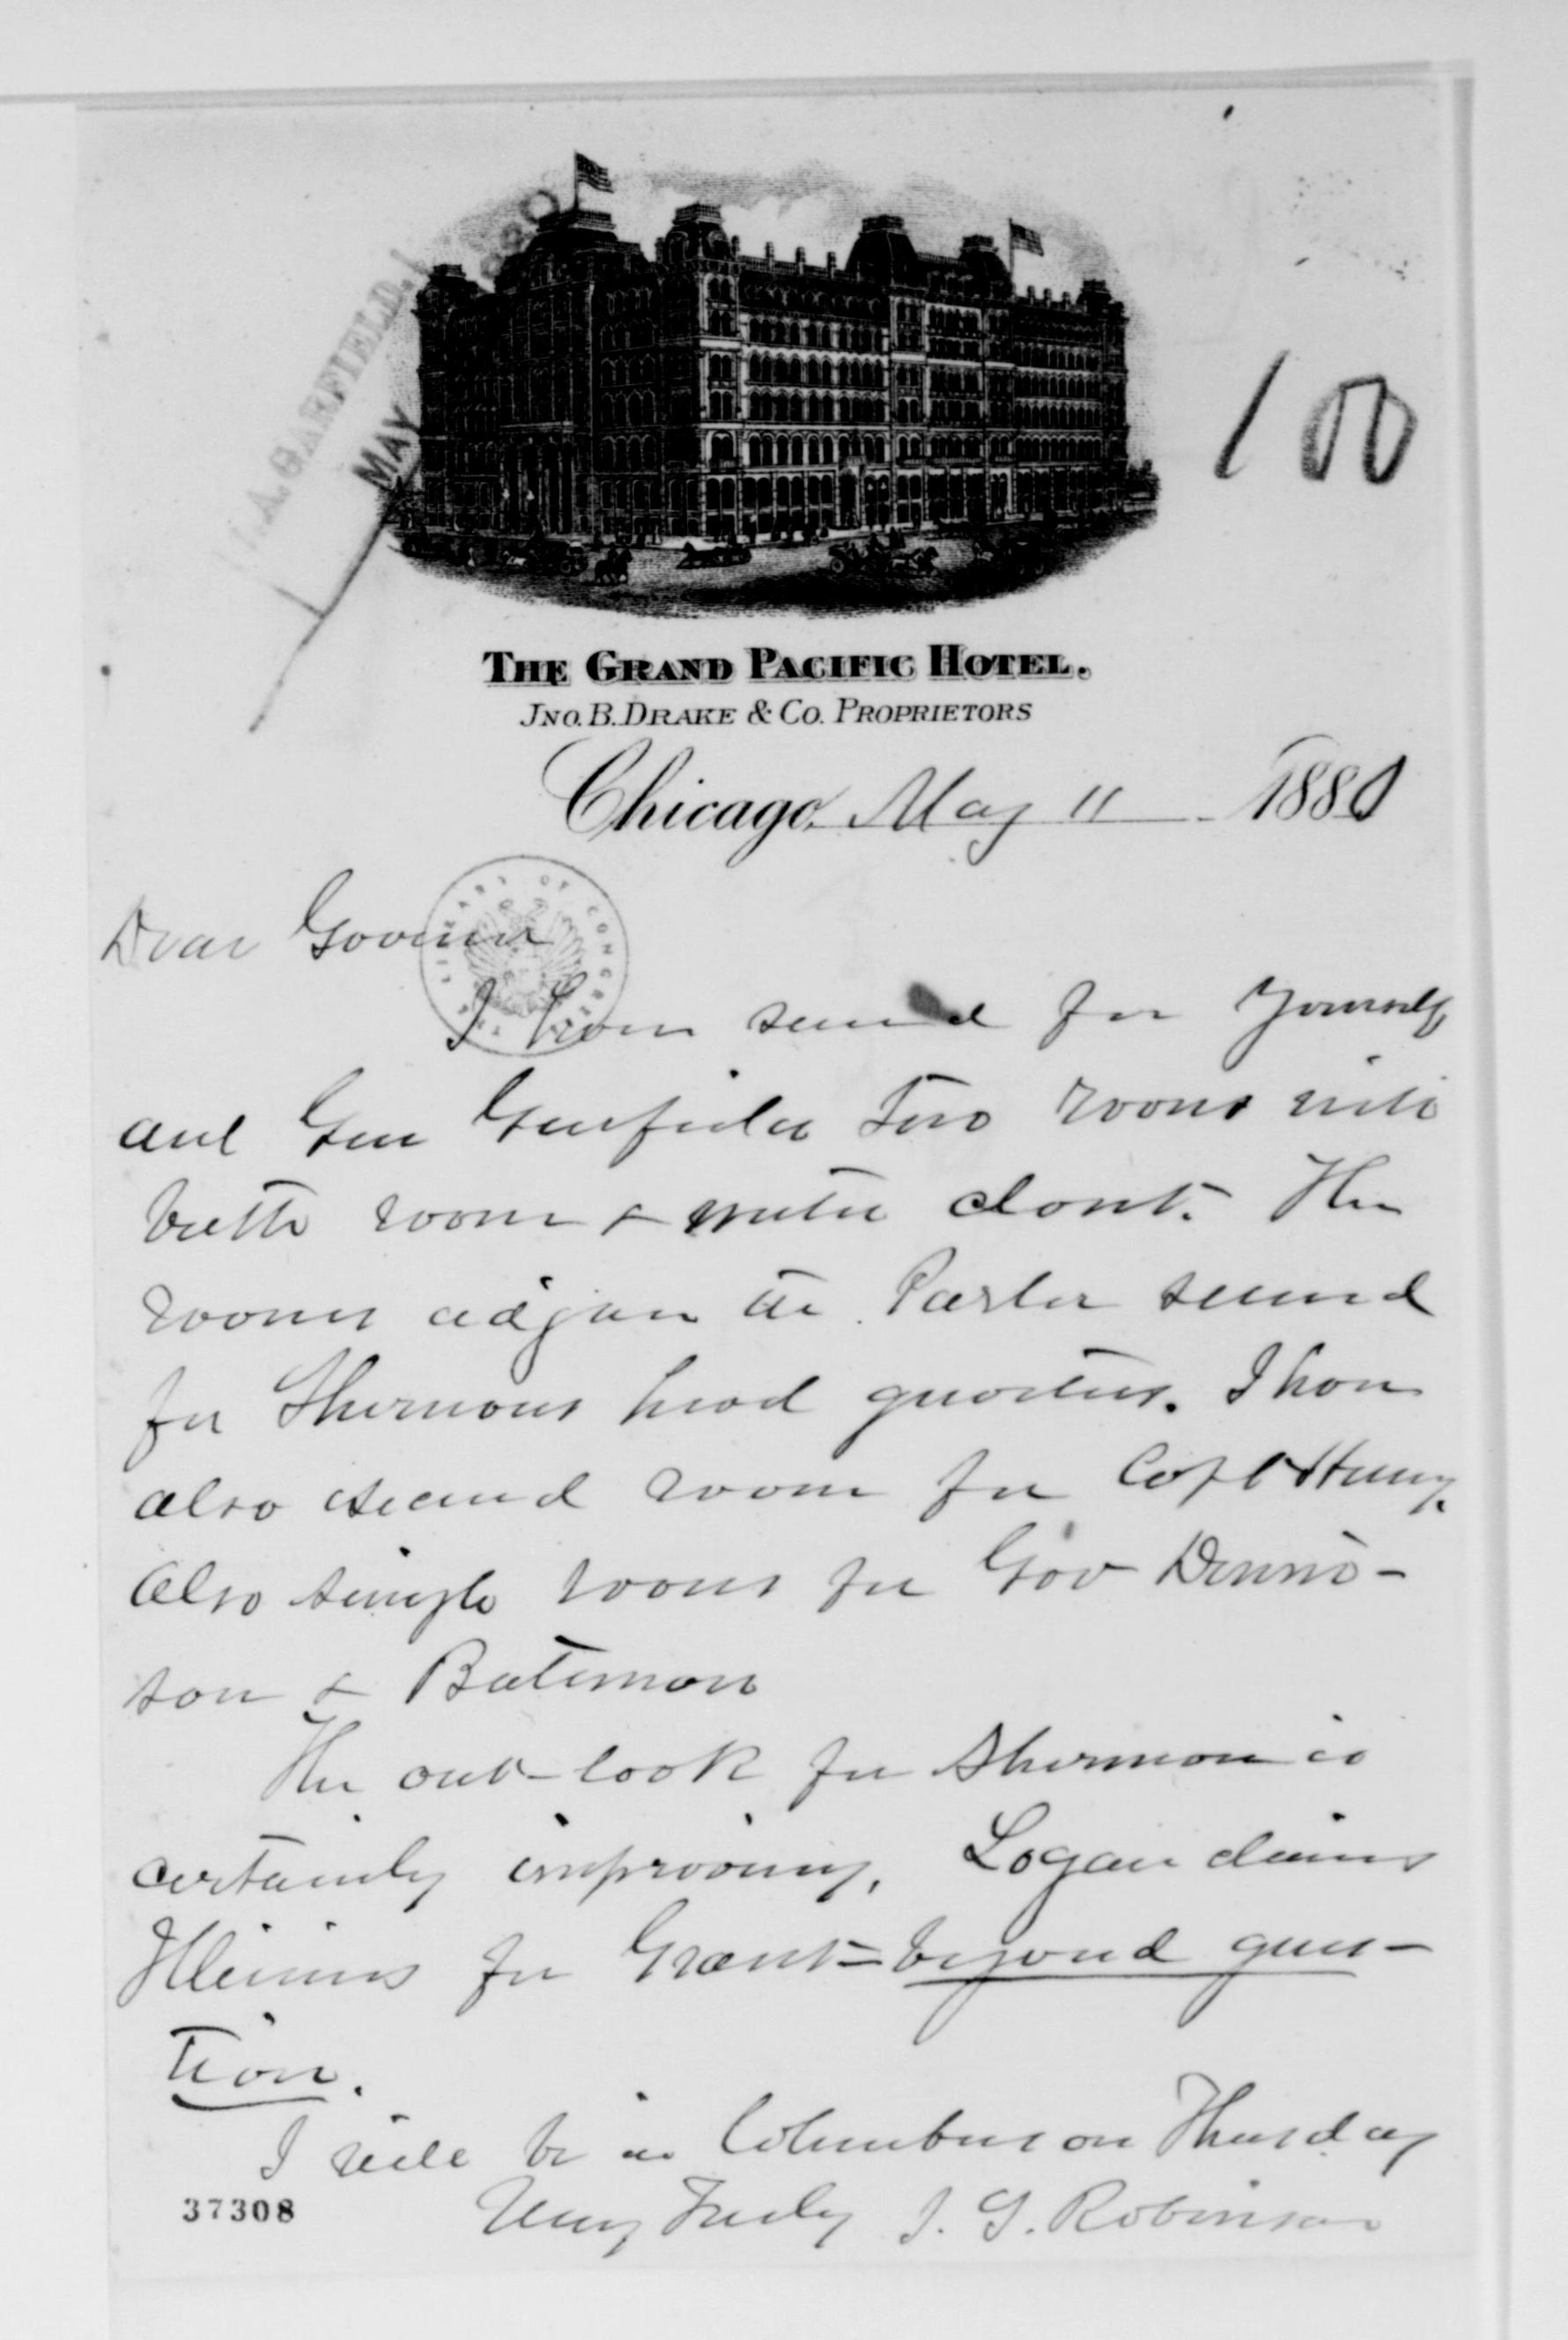 J. A. GARFIELD.
MAY
1880
100
THE GRAND PACIFIC HOTEL.
JNO. B. DRAKE & CO. PROPRIETORS
Chicago, May 11 1880
LIBRARY OF CONGRESS
Dear Governor
I have secured for yourself
and Gen Garfield Two rooms with
bath room & water closet. The
rooms adjoin the Parlor secured
for Shermans head quarters. I have
also secured room for Capt Henry.
Also single rooms for Gov Denni-
son & Bateman
The out-look for Sherman is
certainly improving. Logan claims
Illinois for Grant - beyond ques-
tion.
I will be in Columbus on Thursday
Very Truly J. S. Robinson
37308